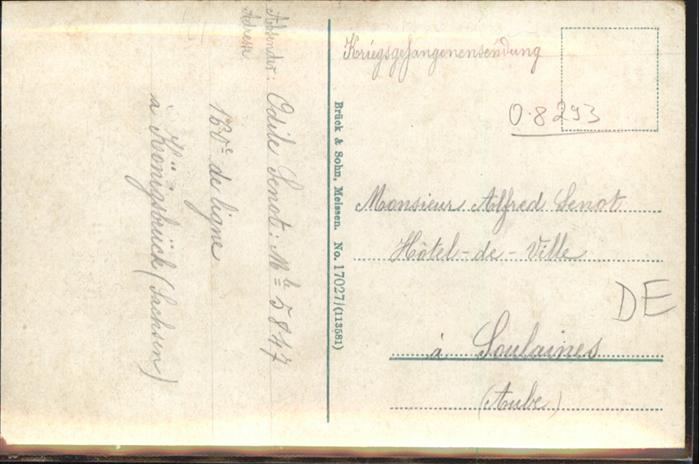 Absender:
Adresse
Odile Senot: Mle 5847
160e de ligne
à Königsbrück (Sachsen)
Brück & Sohn, Meissen. No. 17027/(113581)
Kriegsgefangenensendung
0.8293
Monsieur Alfred Senot
Hôtel-de-Ville
à Soulaines
(Aube)
DE